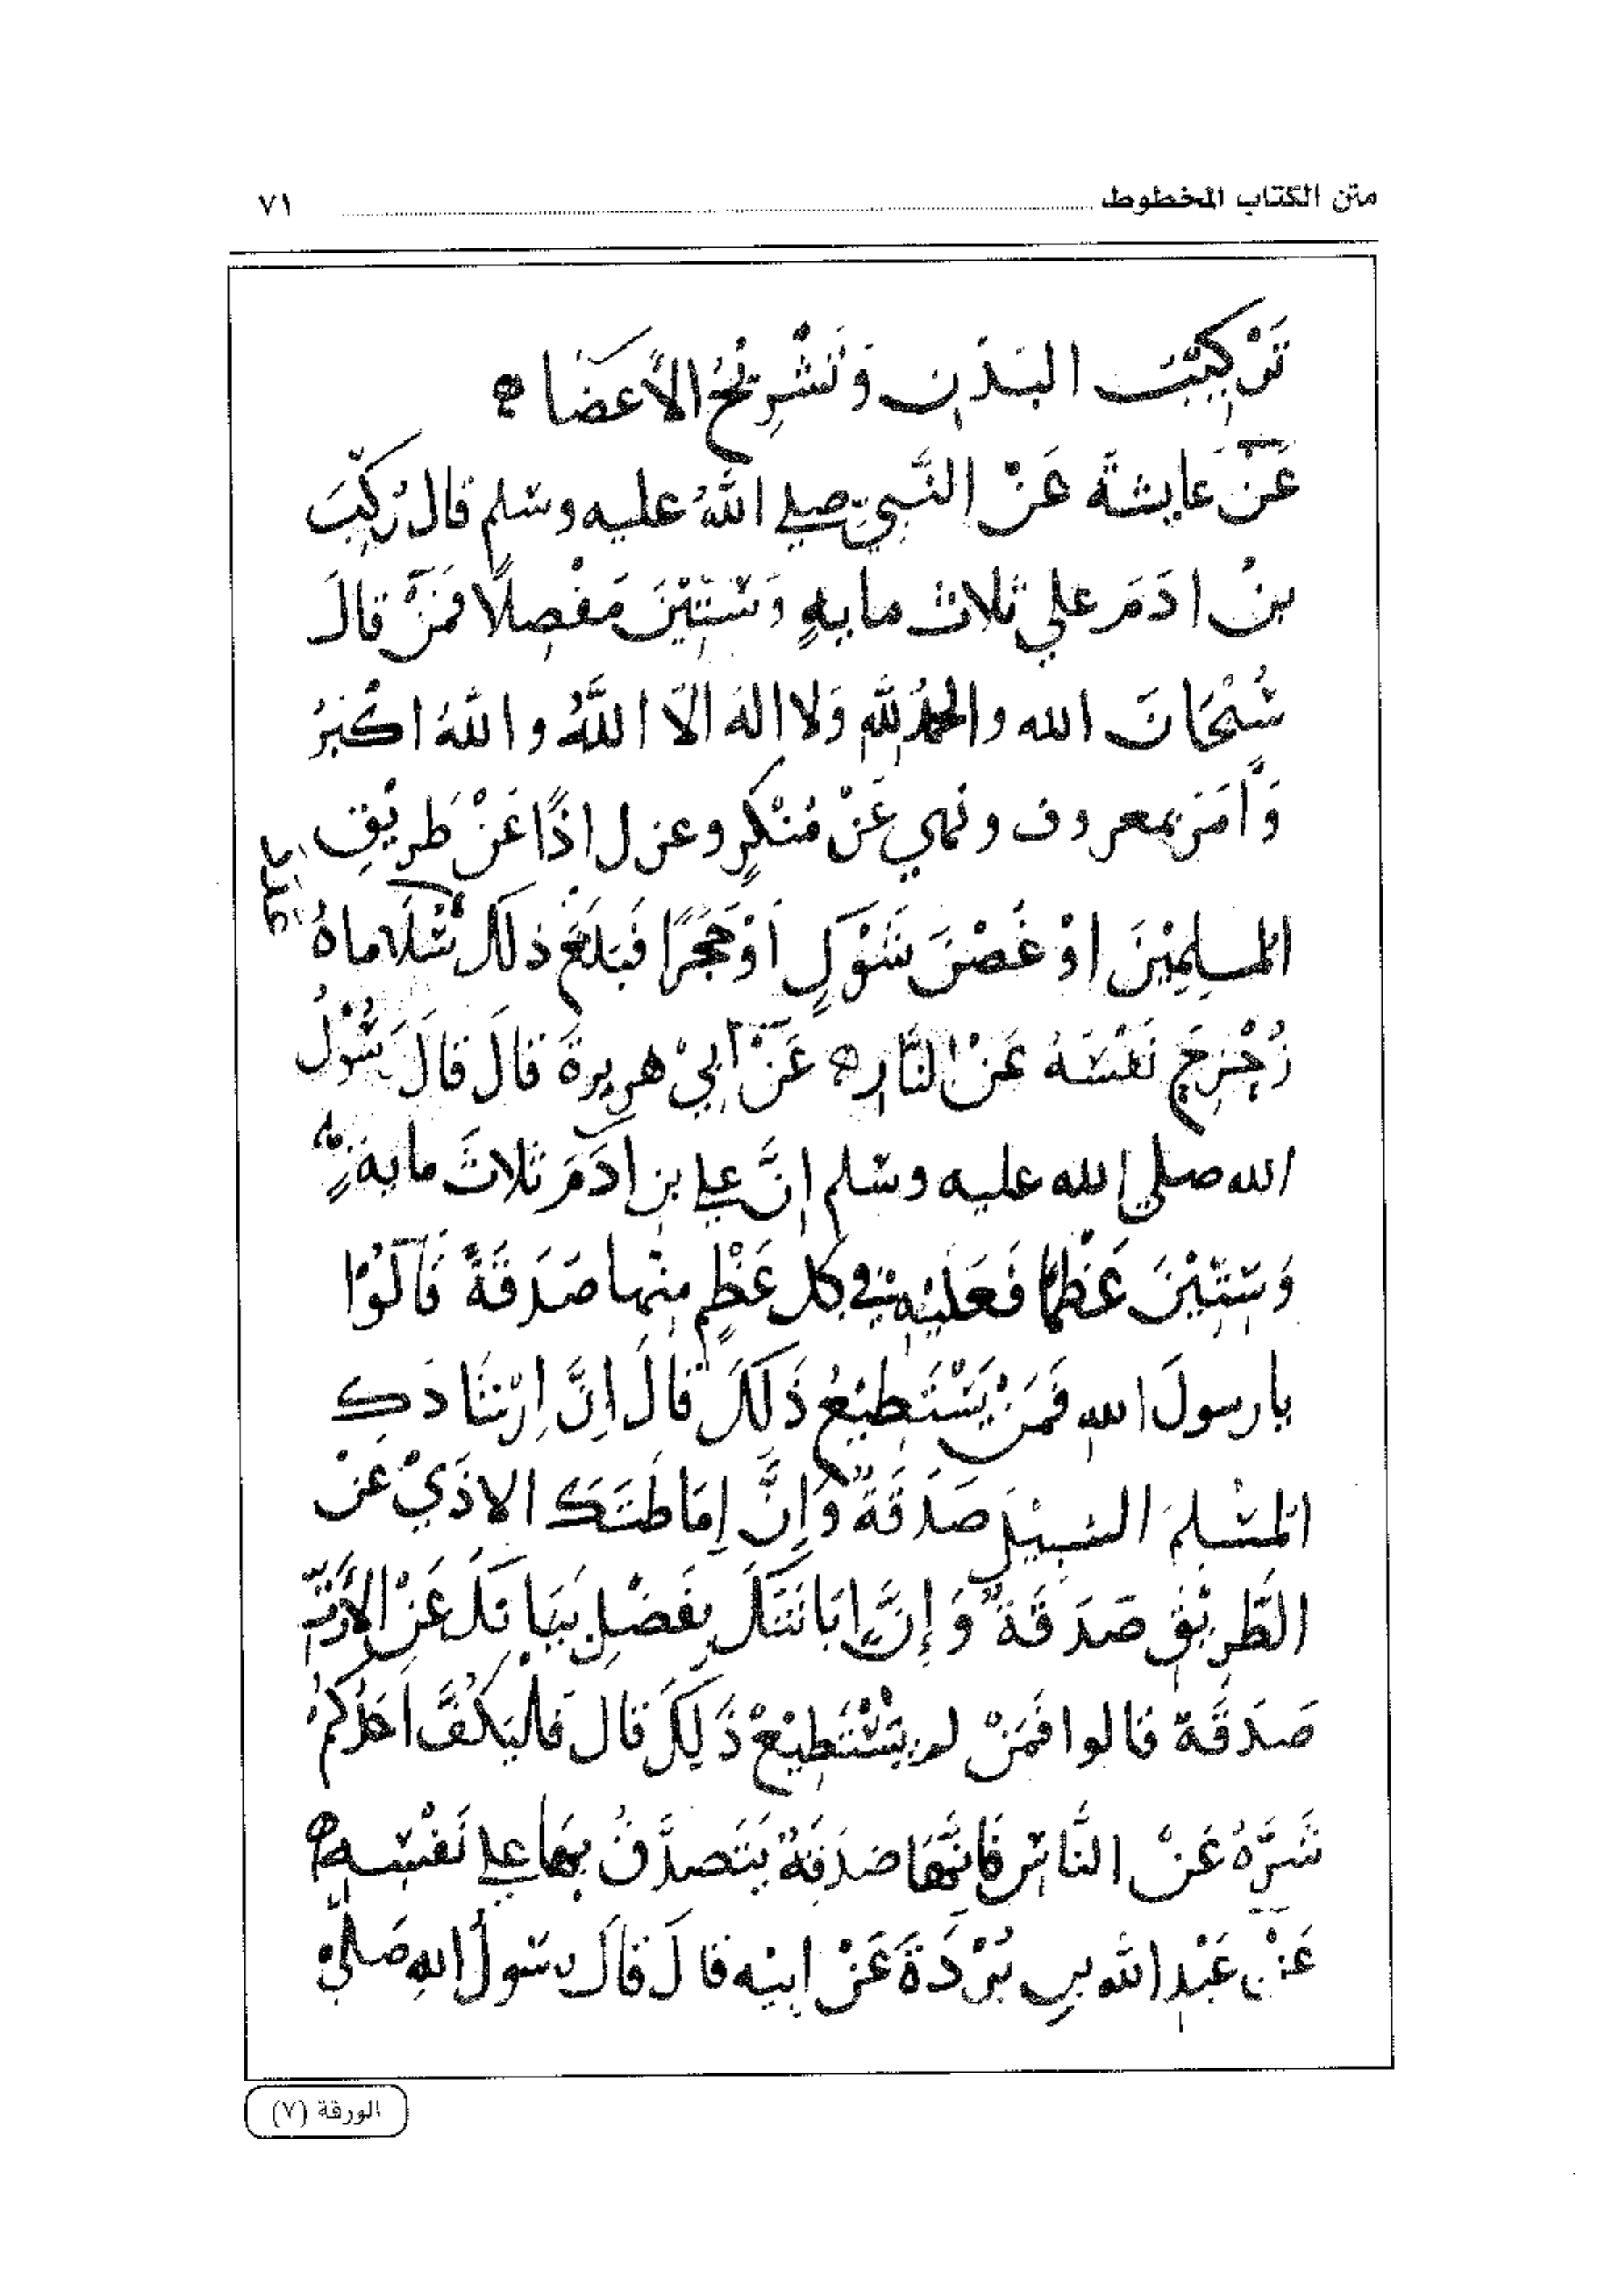 متن الكتاب المخطوط ٧١
تَرْكِيْبُ البَدَنِ وَتَشْرِيْحُ الأَعضَا
عَنْ عايشةَ عَنْ النَّبيِّ صلي اللَّهُ عليه وسلم قال رُكِّبَ
بنُ ادَمَ علي ثلاث مايةٍ وَسِتِّيْنَ مَفْصِلًا فمَنْ قالَ
سُبْحَانَ الله والحمْدُ لله وَلا الهَ الَّا اللَّهُ واللَّهُ اكْبَرُ
وَأَمَرَ بمعروف ونَهي عَنْ مُنْكرٍ وعزل اذًا عَنْ طَريْقِ
المسلِمِيْنَ اوْ غُصْنَ شَوْكٍ اَوْ حَجَرًا فَبَلَغَ ذلك سُلَاماهُ
زُحْزِحَ نَفْسَهُ عَنْ النَّارِ عَنْ أَبيْ هريرةَ قالَ قالَ رَسُوْلُ
الله صلي الله عليه وسلم اِنَّ علي بن ادَمَ ثلاثَ مايةٍ
وَسِتِّيْنَ عَظْمًا فَعَلَيْهِ في كل عَظْمٍ منْها صَدَقَةً قَالُوْا
يا رسولَ اللهِ فَمَنْ يَسْتَطيْعُ ذَلِكَ قالَ اِنَّ اِرْشَادَكَ
المسْلمَ السَّبِيْلَ صَدَقَةٌ وَاِنَّ اِمَاطَتَكَ الاذَيْ عَنْ
الطَّرِيْقِ صَدَقَةٌ وَإِنَّ اِبَانَتَكَ بِفَضْلِ بَيَانِكَ عَنْ الأَرْتَمِ
صَدَقَة قالوا فمَنْ لم يَسْتَطِيْعْ ذَلِكَ قال فَلْيَكُفَّ اَحَدُكمْ
شَرَّهُ عَنْ النَّاسِ فَانَّهَا صَدَقَةٌ يَتَصدَّقُ بهَا علي نَفْسِه
عَنْ عَبْدِ الله بن بُرْدَةَ عَنْ ابِيْه قالَ قالَ رسُولُ اللهِ صَلي
الورقة (٧)